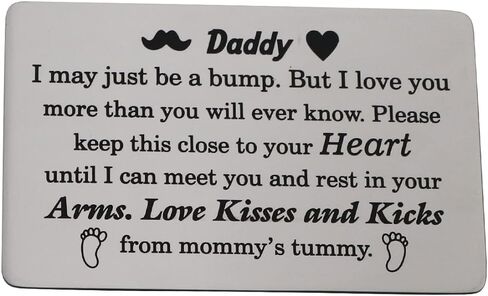 Daddy
I may just be a bump. But I love you
more than you will ever know. Please
keep this close to your Heart
until I can meet you and rest in your
Arms. Love Kisses and Kicks
from mommy's tummy.